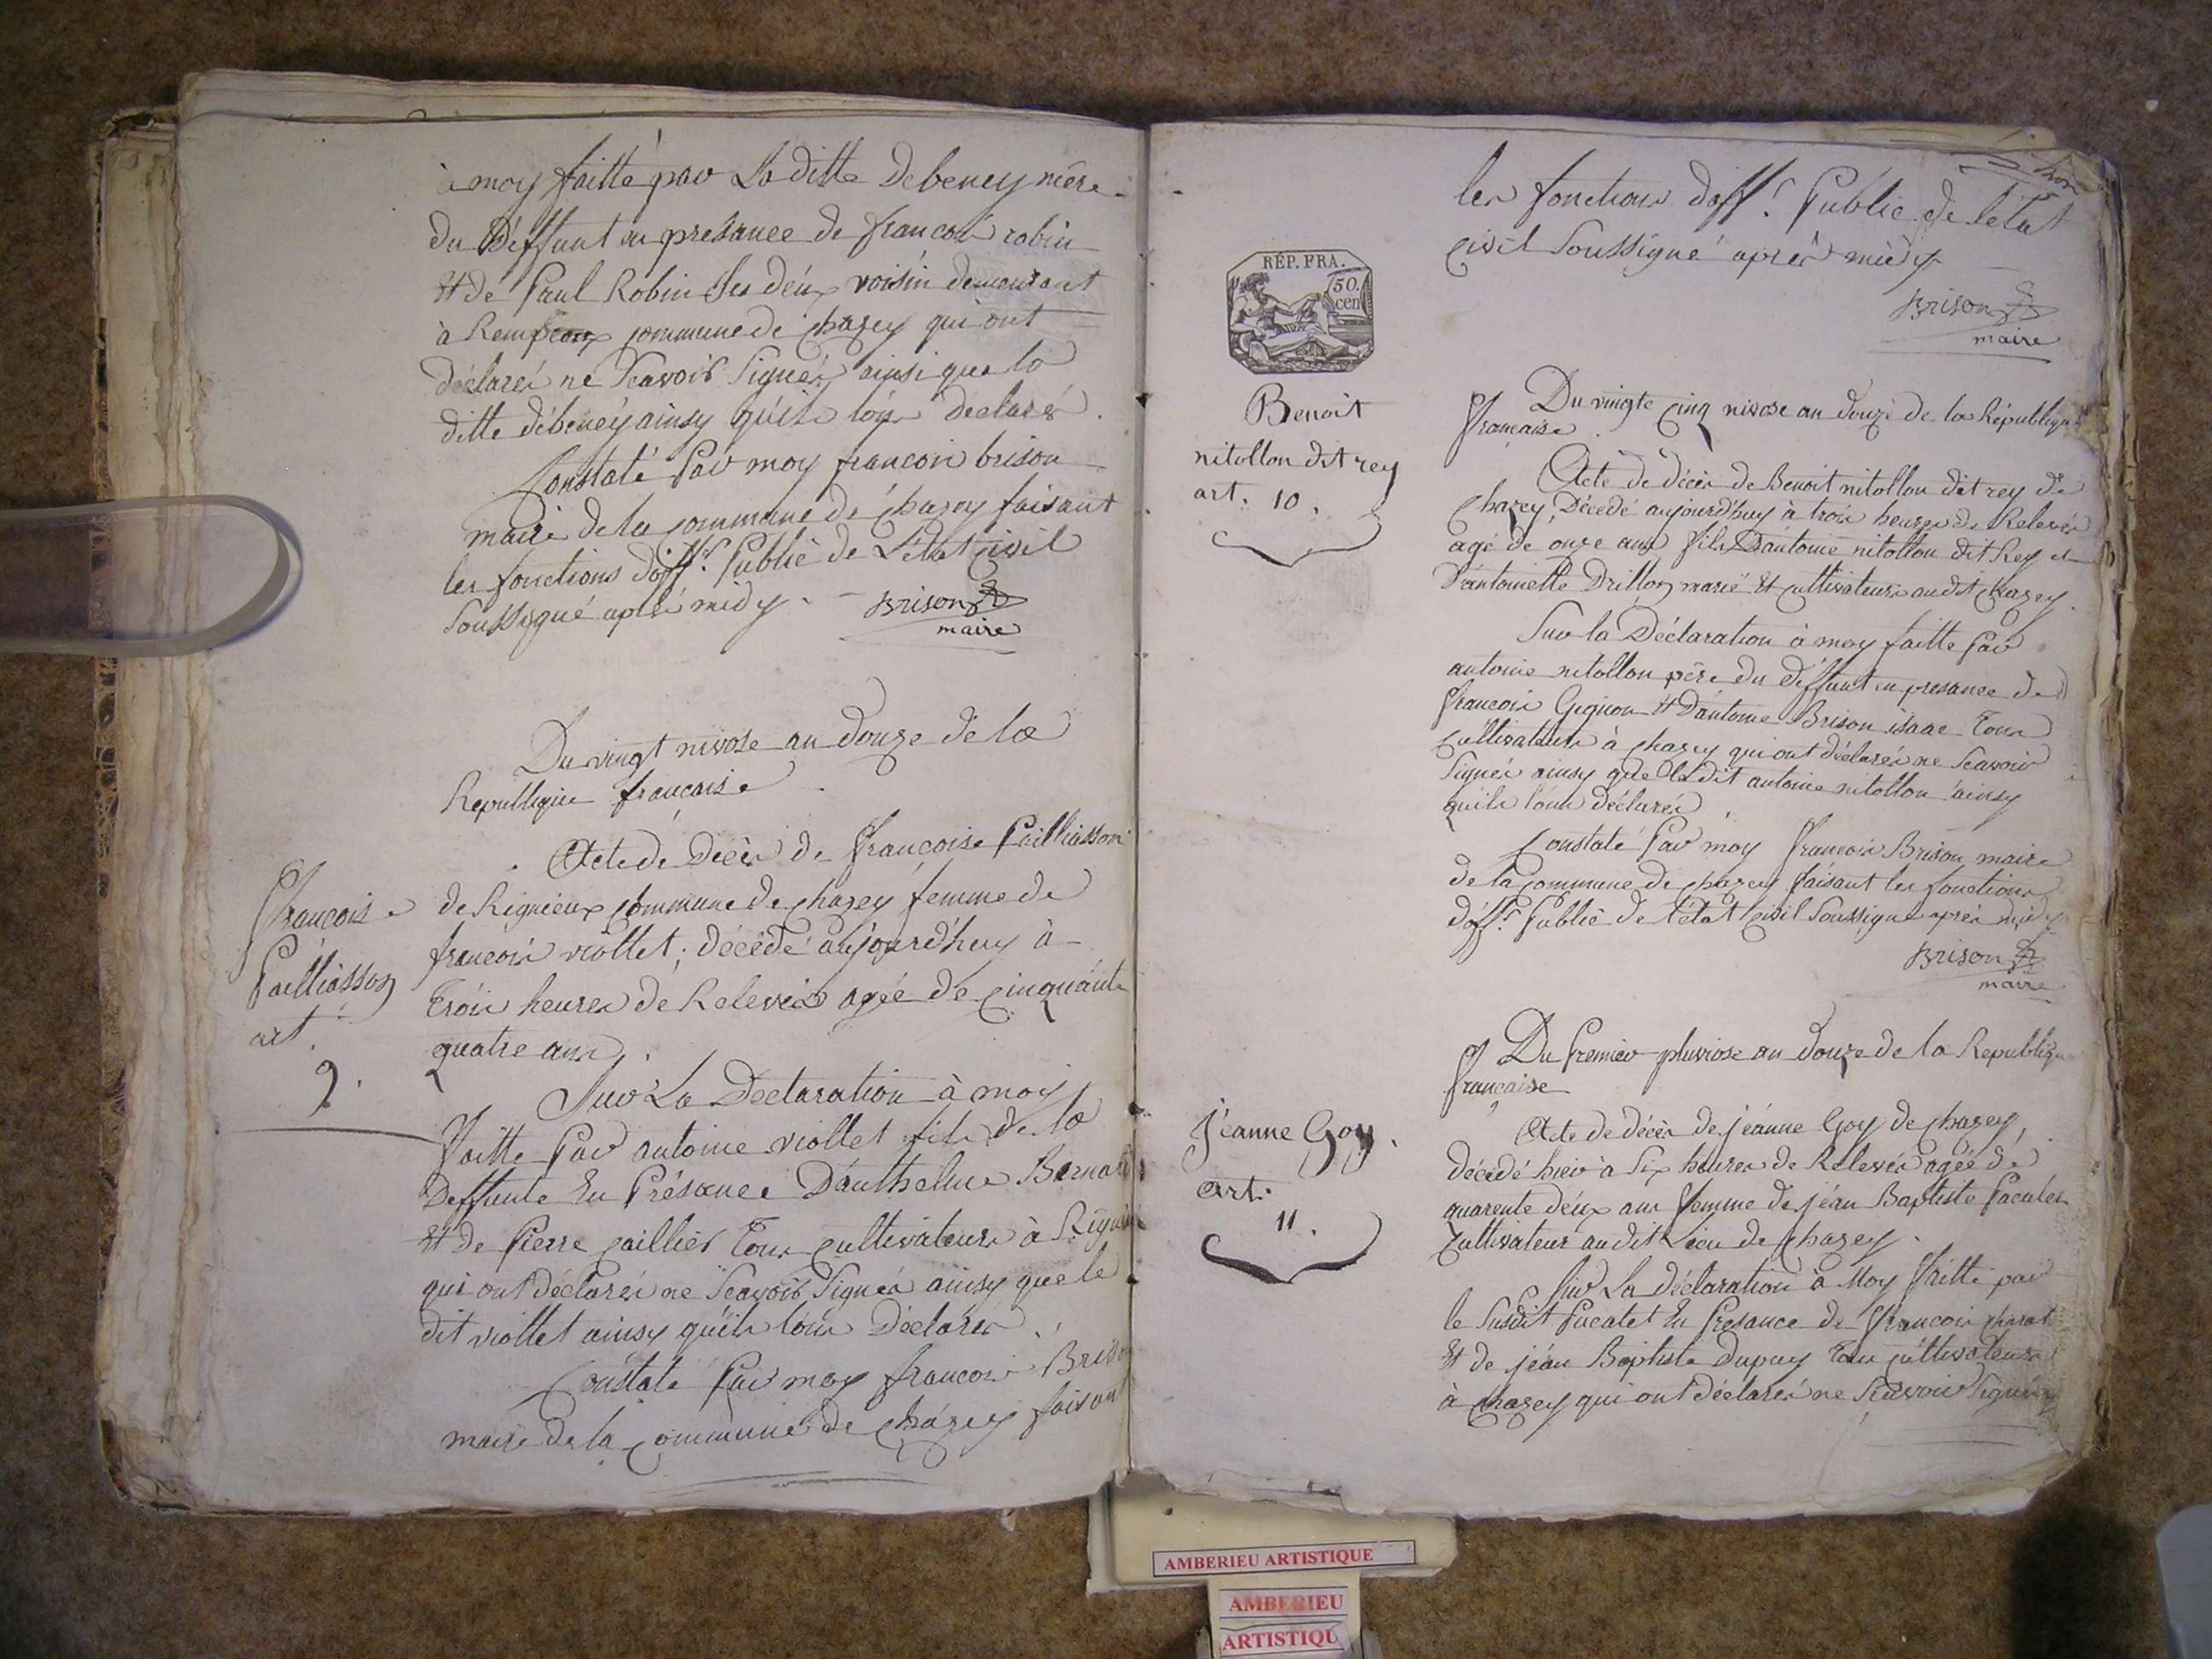 à moy faitte par La ditte Debeney mère
du Deffunt en presance de francois robin
Et de Paul Robin ses deux voisin demeurant
à commune de Chazey qui ont
déclarés ne Scavoir Signér ainsi que la
ditte débeney ainsy qu'ils lon déclaré.
Constaté Par moy francois brison
maire de la commune de Chazey faisant
les fonctions d'off.r Public de L'état civil
Soussigné après midy. Brison
maire
Du vingt nivose an douze de la
Republique francaise
Acte de Décès de francoise Pailliasson
de Rignieux commune de Chazey femme de
francois viollet; décédé aujourd'huy à
trois heures de Relevés agée de cinquante
quatre ans.
Sur La Declaration à moy
faitte Par antoine viollet fils de la
Deffunte En Présance D'anthelme Bernard
Et de Pierre caillier tous cultivateurs à
qui ont déclarés ne Scavoir Signér ainsy que le
dit viollet ainsy qu'ils l'ons Déclarés.
Constaté Par moy francois Brison
maire de la commune de Chazey faisant
francoise
Pailliasson
art.
9.
les fonctions d'off.r Public de l'état
civil Soussigné après midy
Brison
maire
RÉP. FRA.
50.
cen
Benoit
nitollon dit rey
art. 10.
Du vingte cinq nivose an douze de la République
francaise.
Acte de décès de Benoit nitollon dit rey de
Chazey, Décédé aujourd'huy à trois heures de Relevés
agé de onze ans fils D'antoine nitollon dit Rey et
D'antoinette Drillon marié Et cultivateurs audit Chazey.
Sur la Déclaration à moy faitte Par
antoine nitollon père du deffunt en presance de
francois Gignon Et D'antoine Brison isaac tous
cultivateurs à Chazey qui ont déclarés ne Scavoir
Signér ainsy que le dit antoine nitollon ainsy
qu'ils l'ons déclarés
Constaté Par moy francois Brison maire
de la commune de Chazey faisant les fonctions
d'off.r Public de l'état civil Soussigné après midy
Brison
maire
Du Premier pluviose an douze de la Republique
francaise
Jéanne Goy.
art.
11.
Acte de décès de jéanne Goy de Chazey,
décédé hier à Six heures de Relevés agée de
quarente deux ans femme de jéan Baptiste Pacalet
cultivateur audit Lieu de Chazey.
Sur La déclaration à Moy faitte par
le Susdit Pacalet En Presance de francois
Et de jéan Baptiste Dupuy tous cultivateurs
à Chazey qui ont déclarés ne Scavoir Signér
AMBERIEU ARTISTIQUE
AMBERIEU
ARTISTIQU